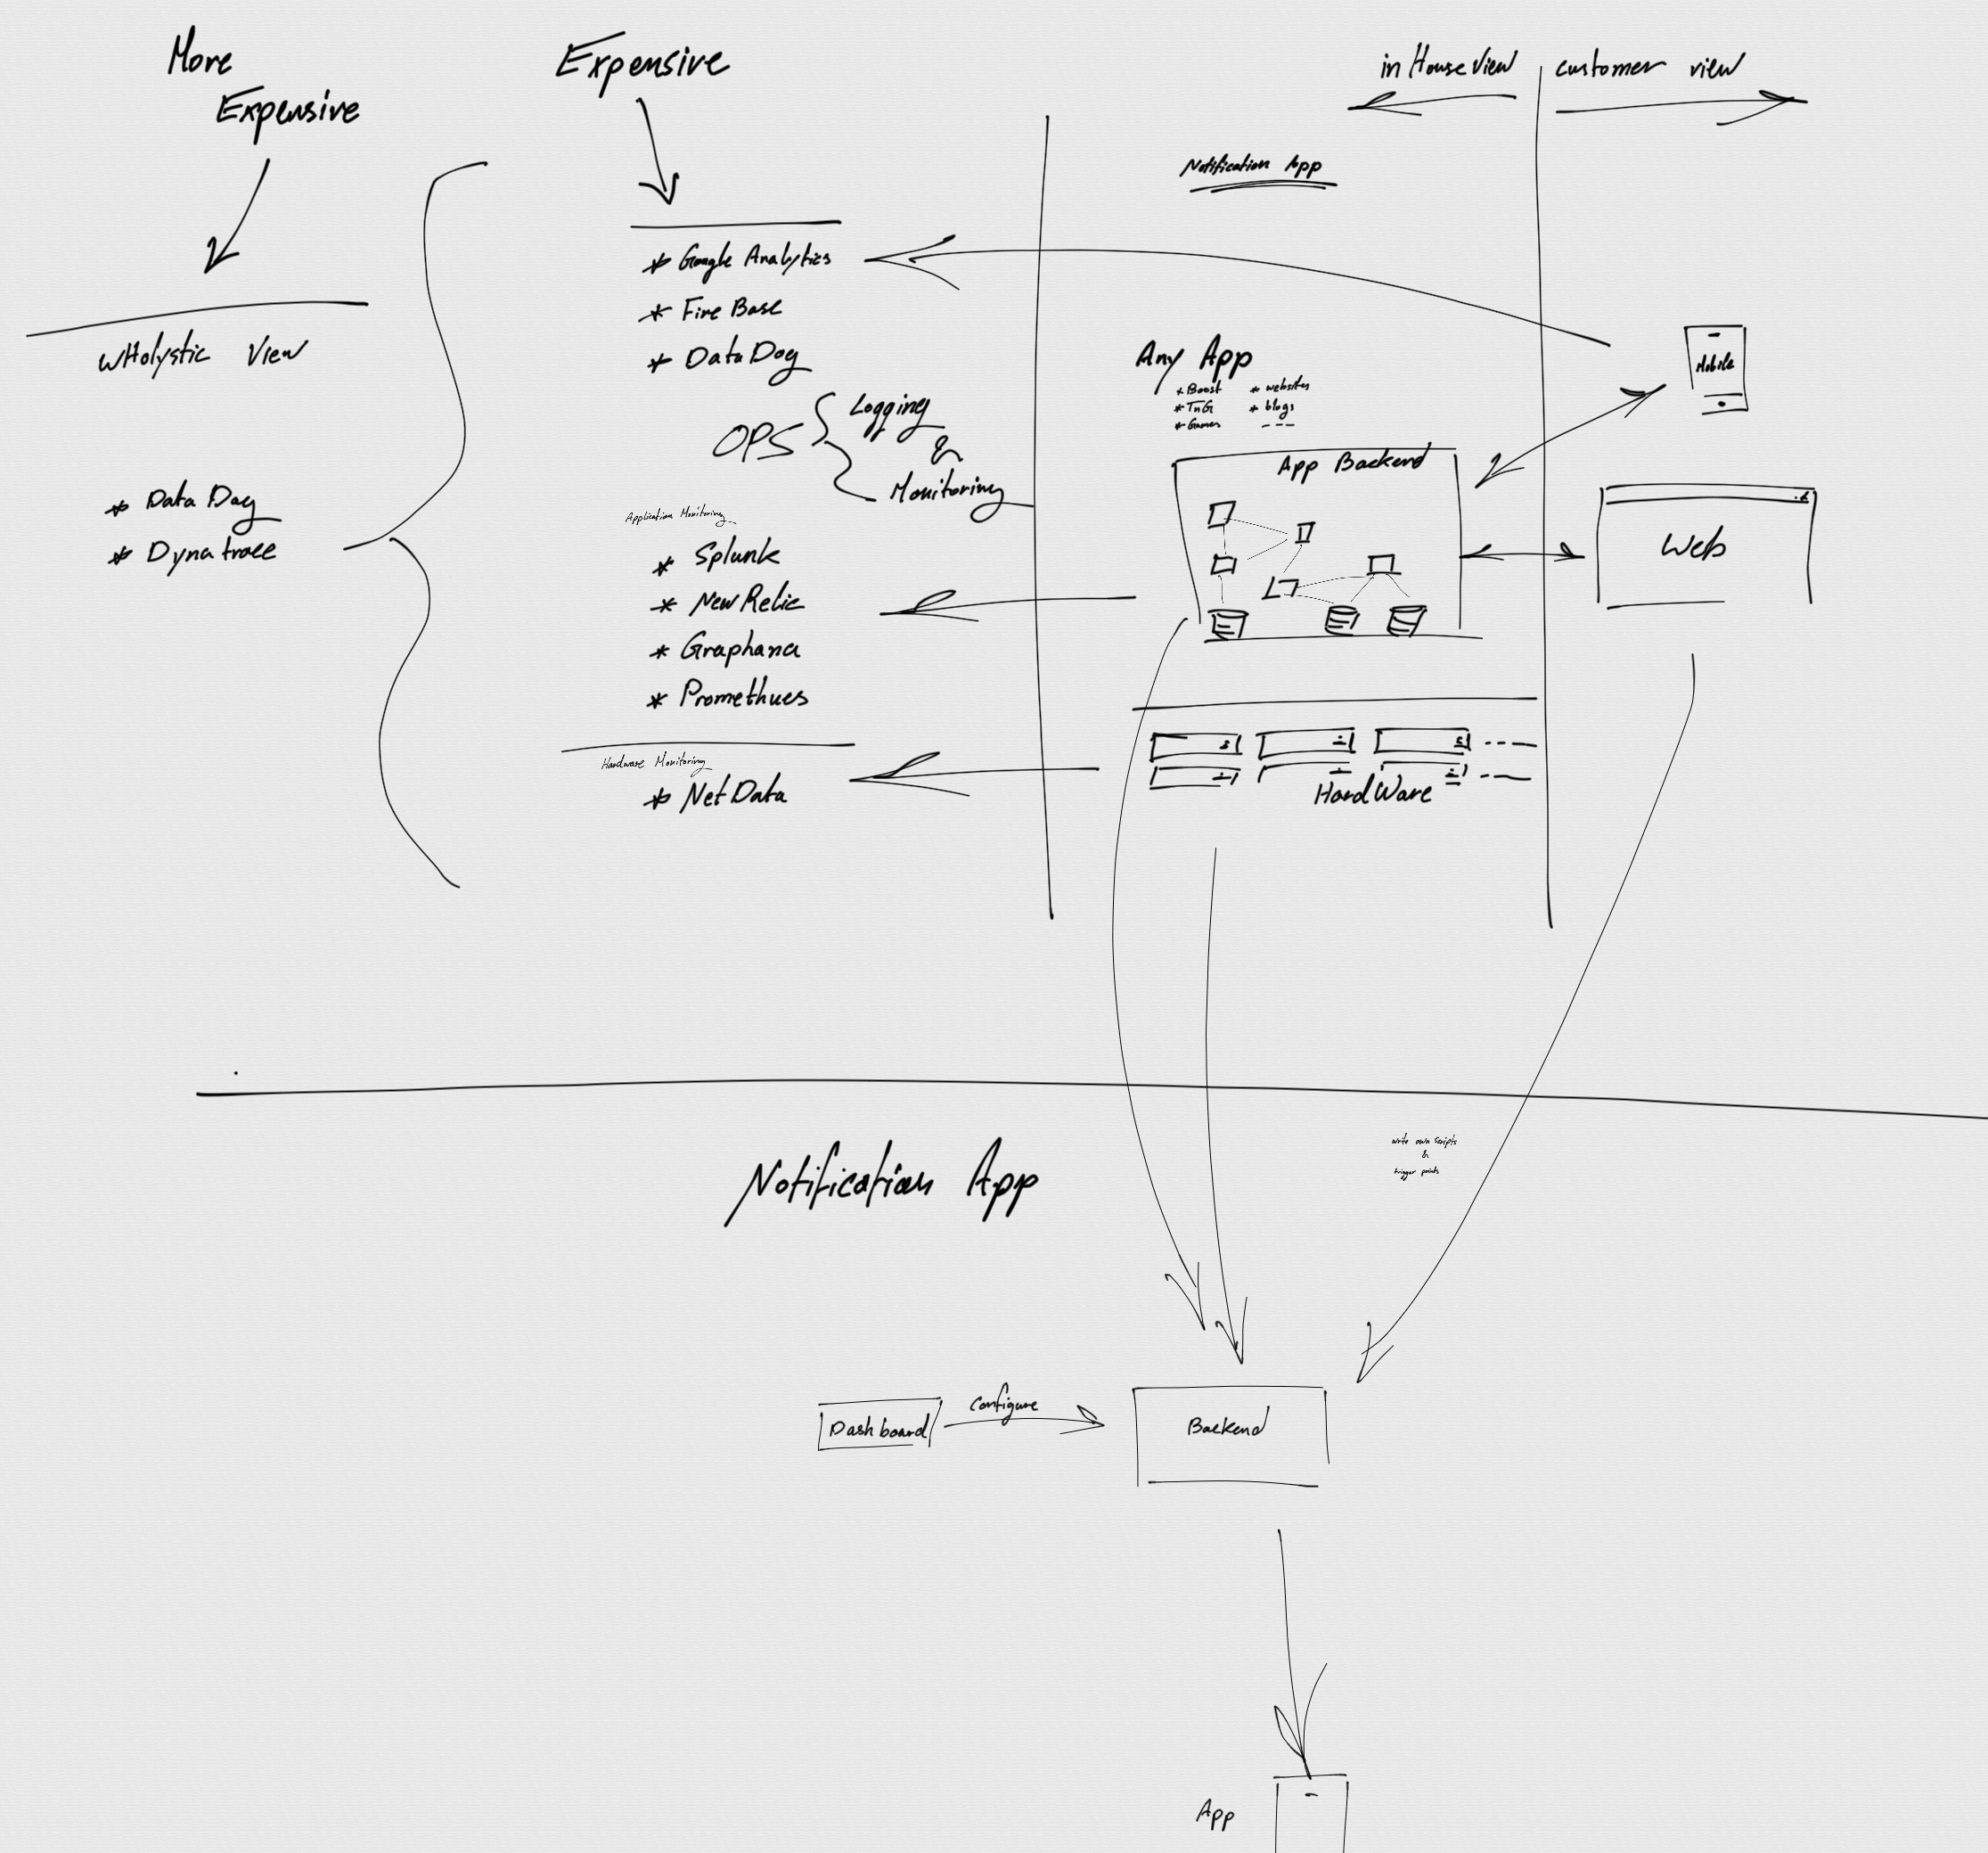 More
Expensive
wHolystic View
* Data Dog
* Dynatrace
Expensive
* Google Analytics
* Fire Base
* Data Dog
OPS
Logging
&
Monitoring
Application Monitoring
* Splunk
* New Relic
* Graphana
* Promethues
Hardware Monitoring
* Net Data
in House View
customer view
Notification App
Any App
* Boost * websites
* TnG * blogs
* Games ---
App Backend
Mobile
Web
HardWare
Notification App
write own scripts
&
trigger points
Dashboard
Configure
Backend
App